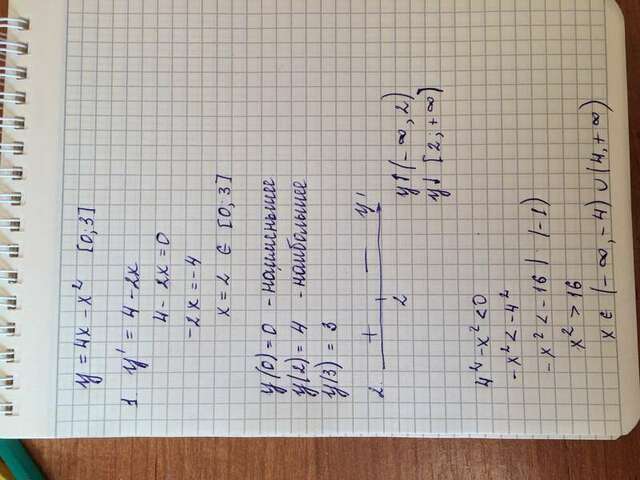 y = 4x - x² [0; 3]
1 y' = 4 - 2x
4 - 2x = 0
-2x = -4
x = 2 ∈ [0; 3]
y(0) = 0 - наименьшее
y(2) = 4 - наибольшее
y(3) = 3
2 + - y'
2
y↑ (-∞, 2)
y↓ [2; +∞)
4² - x² < 0
-x² < -4²
-x² < -16 | (-1)
x² > 16
x ∈ (-∞, -4) ∪ (4, +∞)